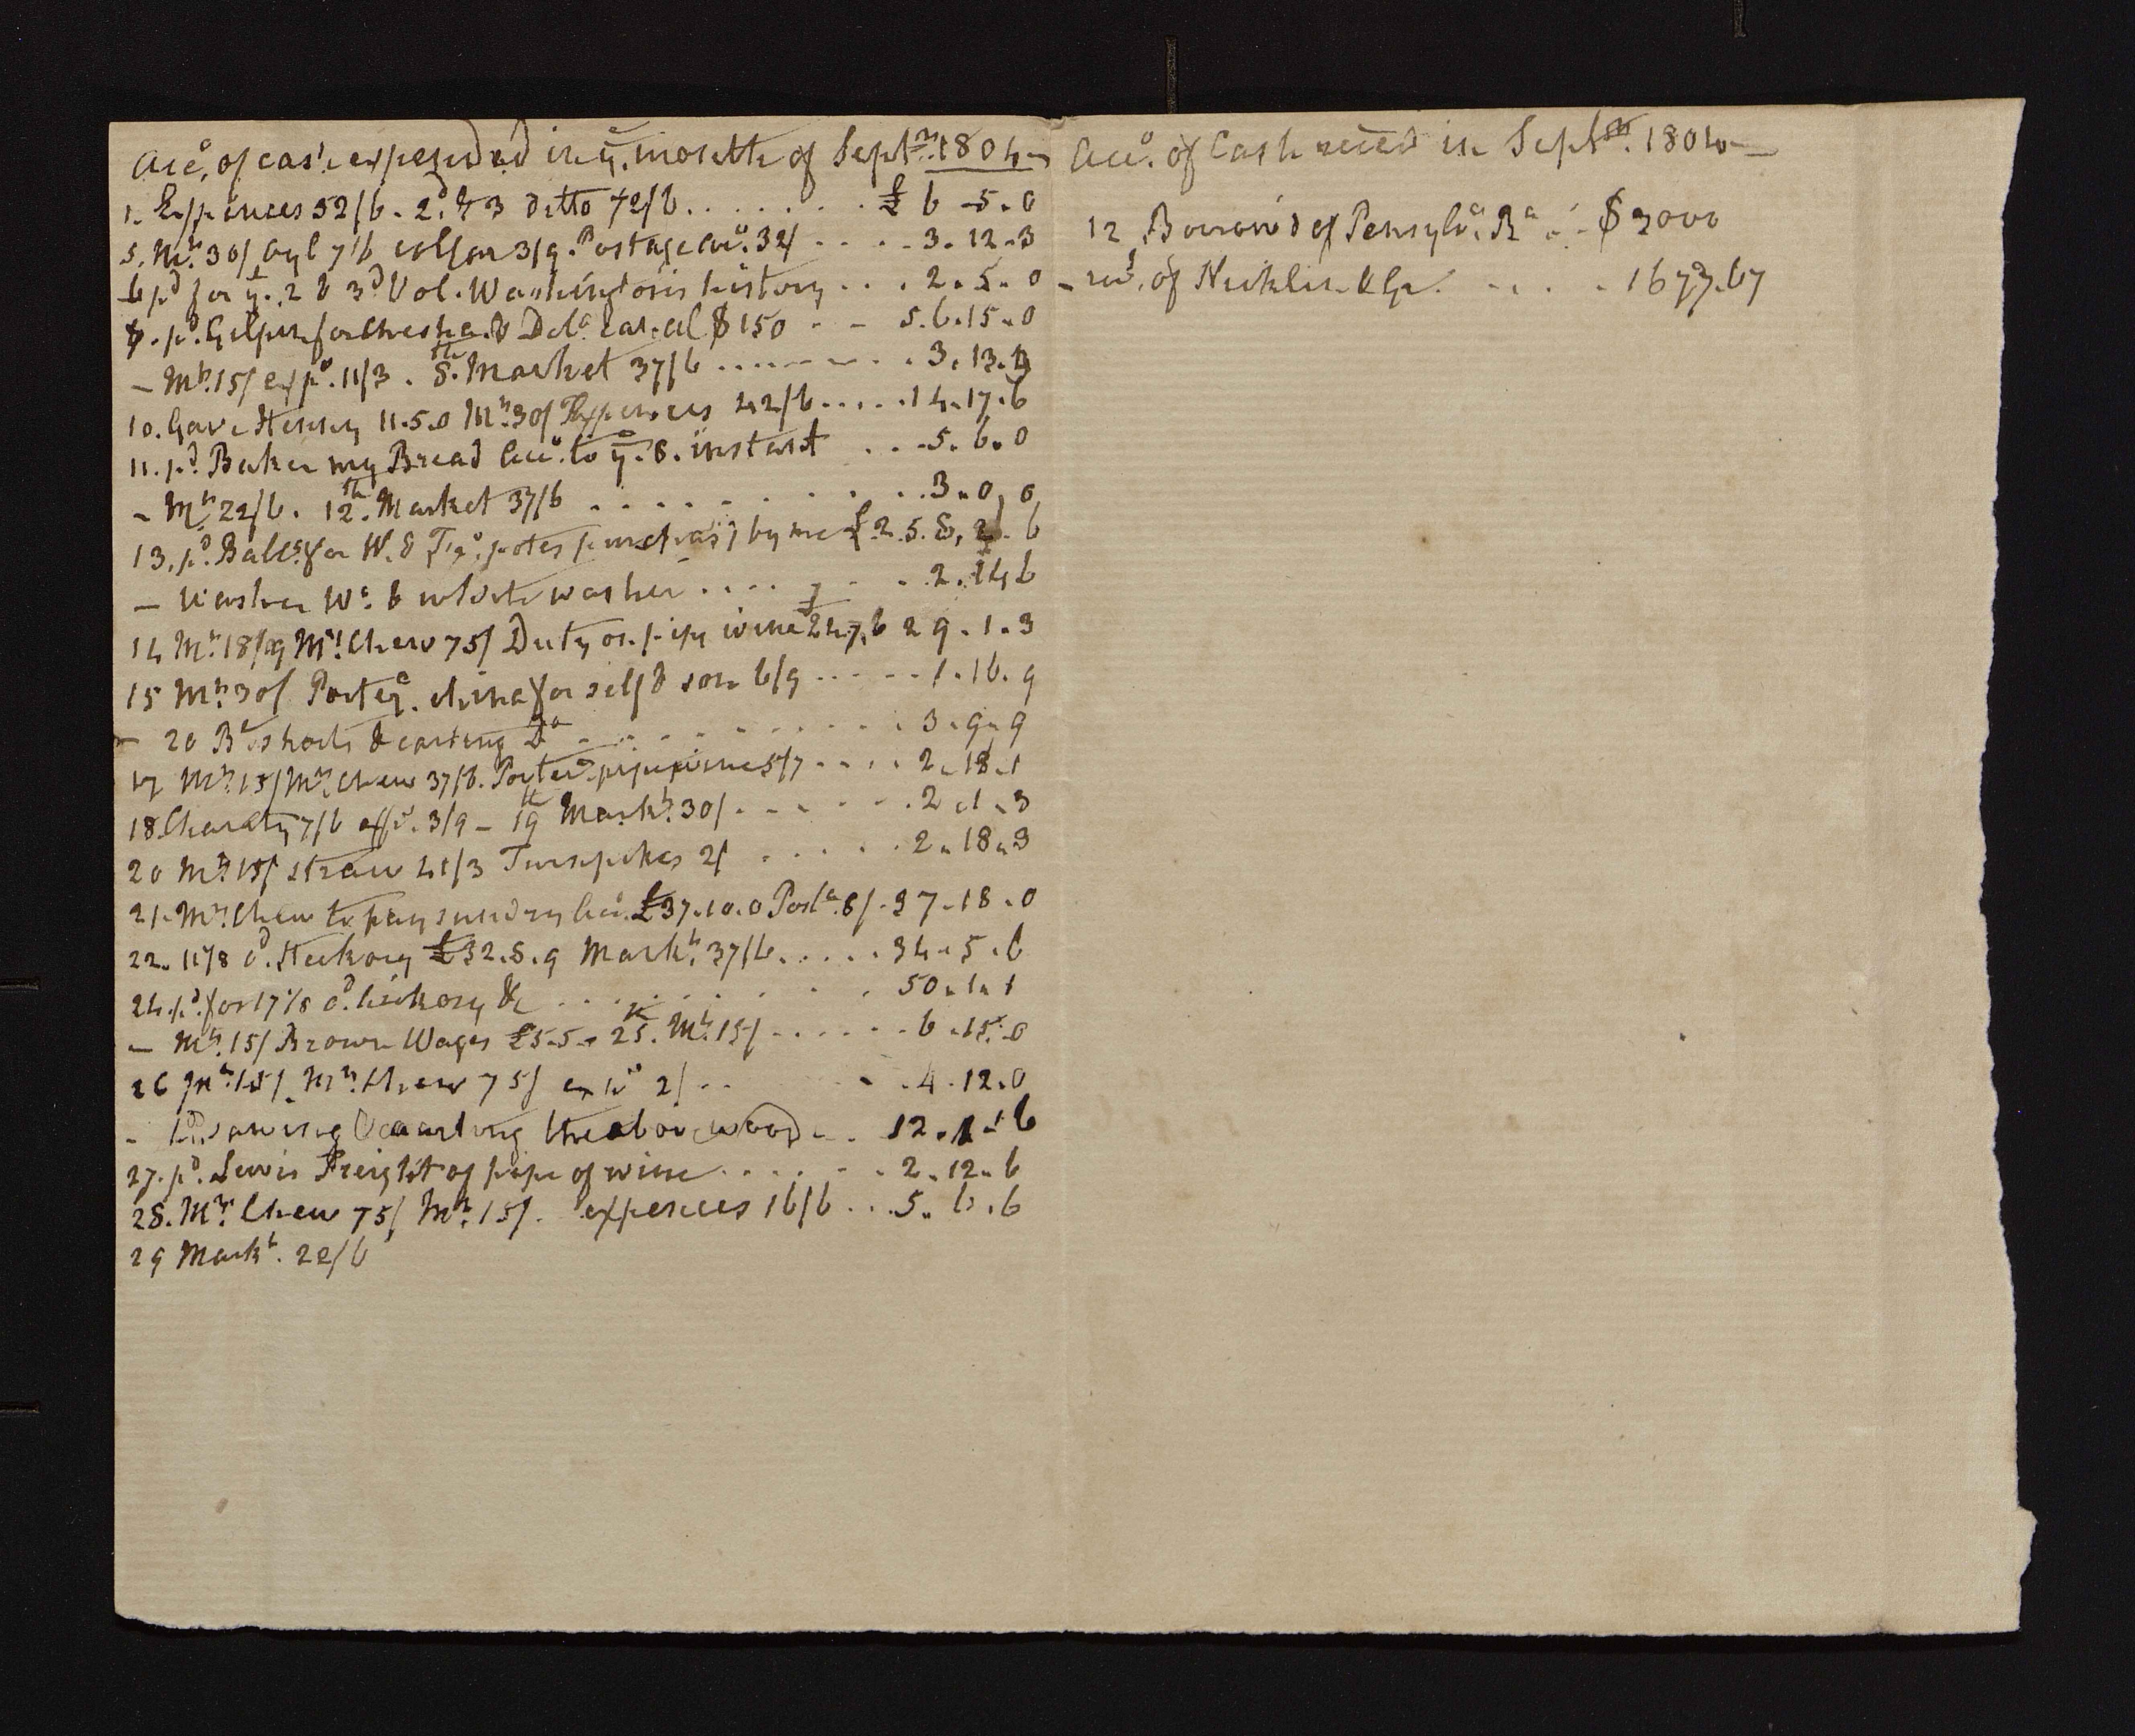 Acco. of cash expended in ye. month of Septr. 1804
1. Expences 52/6. 2d. & 3 ditto 72/6 . . . . . . . £ 6-5.0
5. Mkt. 30/ oyl 7/6 3/9. Postage Acco. 32/ . . . . 3.12.3
6 pd for ye. 2 & 3d Vol. Washington's history . . . 2.5.0
pd. Gilpin for Chesha. & Dela. canal $150 . . 56.15.0
- Mkt. 15/ exps. 11/3. 8th. Market 37/6 . . . . . . . 3.13.
10. Gave Henry 11.5.0 Mkt. 30/ Expences 42/6 . . . . . 14.17.6
11. pd. Baker my Bread Acco. to ye. 8. instant . . . 5.6.0
- Mkt 22/6. 12th. Market 37/6 . . . . . . . . . 3.0.0
13. pd. for W. & notes purchas'd by me
- Washer Wn. & white washer . . . . . . 2.14.6
14 Mkt. 18/9 Mrs. Chew 75/ Duty on pipe wine £24.7.6 29.1.3
15 Mkt. 30/ Portea. china for self & son 6/9 . . . . . 1.16.9
- 20 Bls shorts & carting Do . . . . . . . . . 3.9.9
17 Mkt. 15/ Mrs. Chew 37/6. Portea. pipe wine 5/7 . . . . 2.18.1
18 Charity 7/6 3/9 - 19th Markt. 30/ . . . . . . 2.1.3
20 Mkt. 15/ straw 41/3 Turnpikes 2/ . . . . . 2.18.3
21. Mrs. Chew to pay sundry Acco. £37.10.0 Posta. 8/. 37.18.0
22. 11 1/8 Cd. Hickory £32.8.9 Markt. 37/6 . . . . . 34.5.6
24. pd. for 17 1/8 Cd. hickory &c . . . . . . . . 50.1.1
- Mkt. 15/ Brown Wages £5.5.- 25. Mkt. 15/ . . . . . . 6.15.0
26 Mkt. 15/. Mrs. Chew 75/ exps 2/ . . . . 4.12.0
- & carting the above wood . . 12.1.6
27. pd. Lewis Freight of pipe of wine . . . . . . 2.12.6
28. Mrs. Chew 75/ Mkt. 15/. expences 16/6 . . . 5.6.6
29 Markt. 22/6
Acco. of Cash recied in Septr. 1804
12 Borrow'd of Pensylva. Ba . . - $3000
- recd. of Nicklin & Gr. . . . . 1677.67